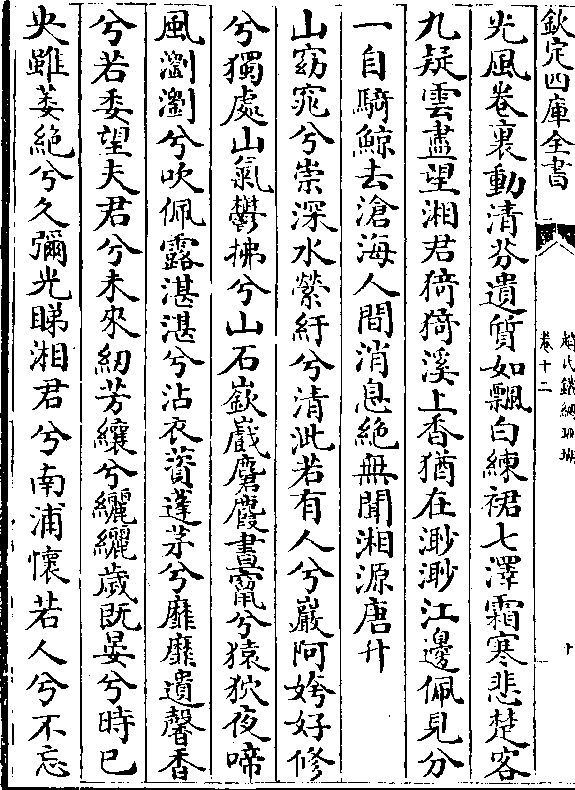 欽定四庫全書
趙氏鐵網珊瑚
卷十二
十
光風卷裏動清芬遺質如飄白練裙七澤霜寒悲楚客
九疑雲盡望湘君猗猗溪上香猶在渺渺江邊佩見分
一自騎鯨去滄海人間消息絶無聞湘源唐升
山窈窕兮崇深水縈紆兮清泚若有人兮巖阿姱好修
兮獨處山氣鬱拂兮山石嶔巇麏麚晝竄兮猿狖夜啼
風瀏瀏兮吹佩露湛湛兮沾衣薋蓬茅兮靡靡遺馨香
兮若委望夫君兮未來紉芳纕兮纚纚歲既晏兮時已
央雖萎絶兮久彌光睇湘君兮南浦懷若人兮不忘